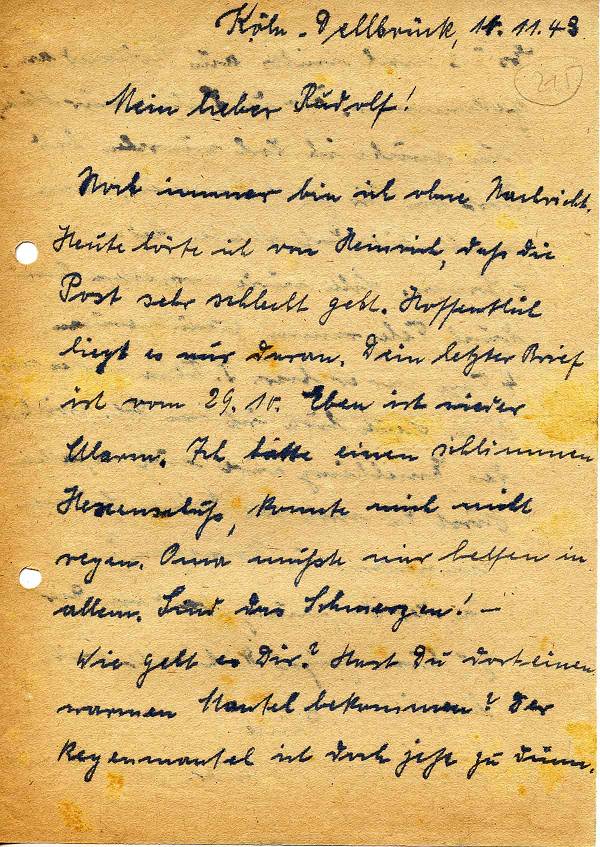 Köln-Dellbrück, 11.11.43
215
Mein lieber Rudolf!
Noch immer bin ich ohne Nachricht.
Heute hörte ich von Heinrich, daß die
Post sehr schlecht geht. Hoffentlich
liegt es nur daran. Dein letzter Brief
ist vom 29. 10. Eben ist wieder
Alarm. Ich hatte einen schlimmen
Hexenschuß, konnte mich nicht
regen. Oma mußte mir helfen in
allem. Sind das Schmerzen! –
Wie geht es Dir? Hast Du dort einen
warmen Mantel bekommen? Der
Regenmantel ist doch jetzt zu dünn.